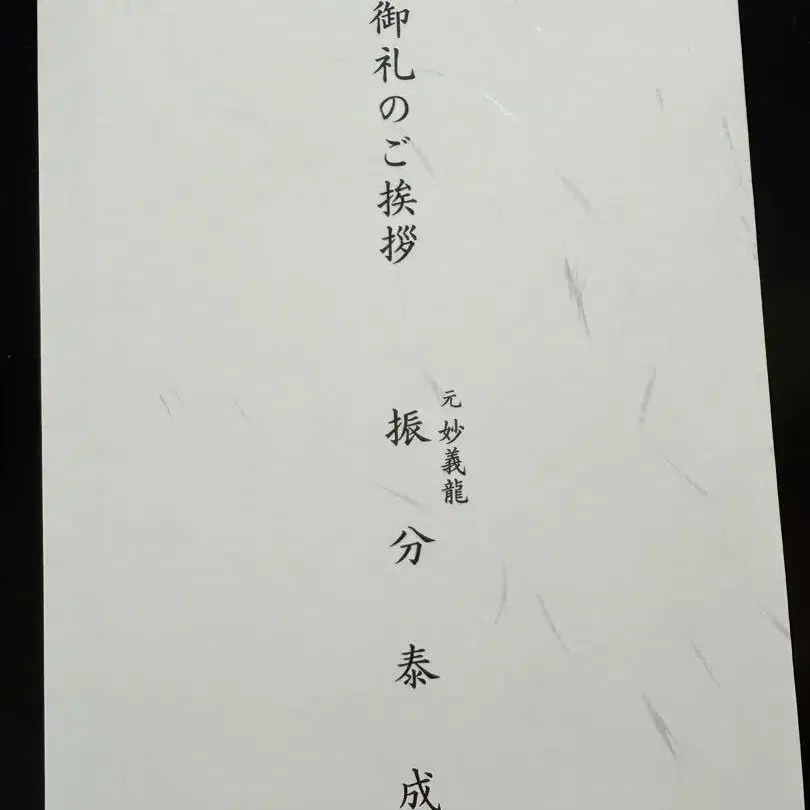 御礼のご挨拶
元 妙義龍
振分泰成